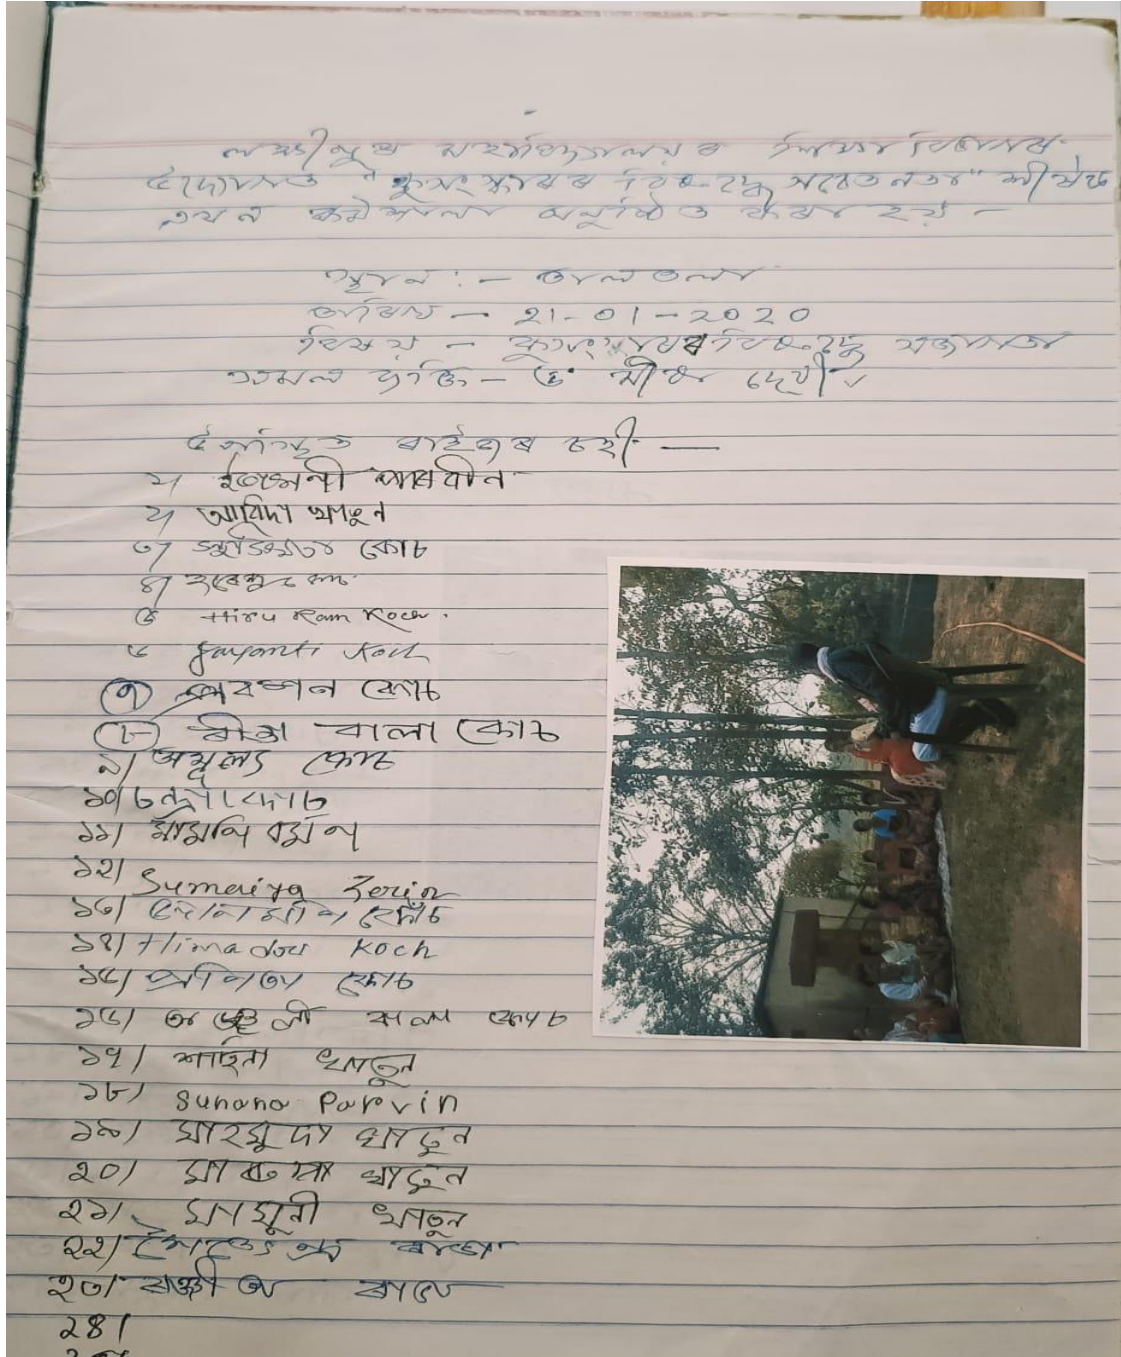 লক্ষীপুৰ মহাবিদ্যালয়ৰ শিক্ষা বিভাগৰ
উদ্যোগত "কুসংস্কাৰৰ বিৰুদ্ধে সচেতনতা" শীৰ্ষক
এখন কৰ্মশালা অনুষ্ঠিত কৰা হয় -
স্থান :- তালতলা
তাৰিখ - 21-01-2020
বিষয় - কুসংস্কাৰৰ বিৰুদ্ধে সজাগতা
সমল ব্যক্তি - ড° মীৰা দেবী।
উপস্থিত ৰাইজৰ চহী —
১/ পাৰবীন
২/ আবিদা খাতুন
৩/ কোচ
৪/
৫ Hiru Ram Koch.
৬ Jayanti Koch
৭ কোচ
৮ বালা কোচ
৯/ অমূল্য কোচ
১০/ চন্দ্ৰা কোচ
১১/ মামনি বৰ্মন
১২/ Sumaiya Zerin
১৩/ কোঁচ
১৪/ Himadou Koch
১৫/ প্ৰনিতা কোচ
১৬/ বালা কোচ
১৭/ শাহিনা খাতুন
১৮/ Sunana Parvin
১৯/ মাহমুদা খাতুন
২০/ খাতুন
২১/ মামুনী খাতুন
২২/ ৰাভা
২৩/ ৰঞ্জীতা ৰাভা
২৪/